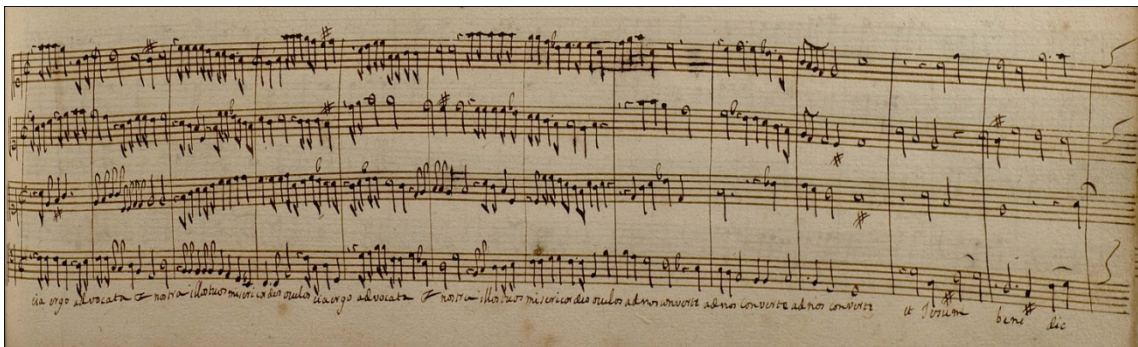 eia ergo advocata & nostra illos tuos misericordes oculos eia ergo advocata & nostra illos tuos misericordes oculos ad nos converte ad nos converte ad nos converte et Jesum bene dic